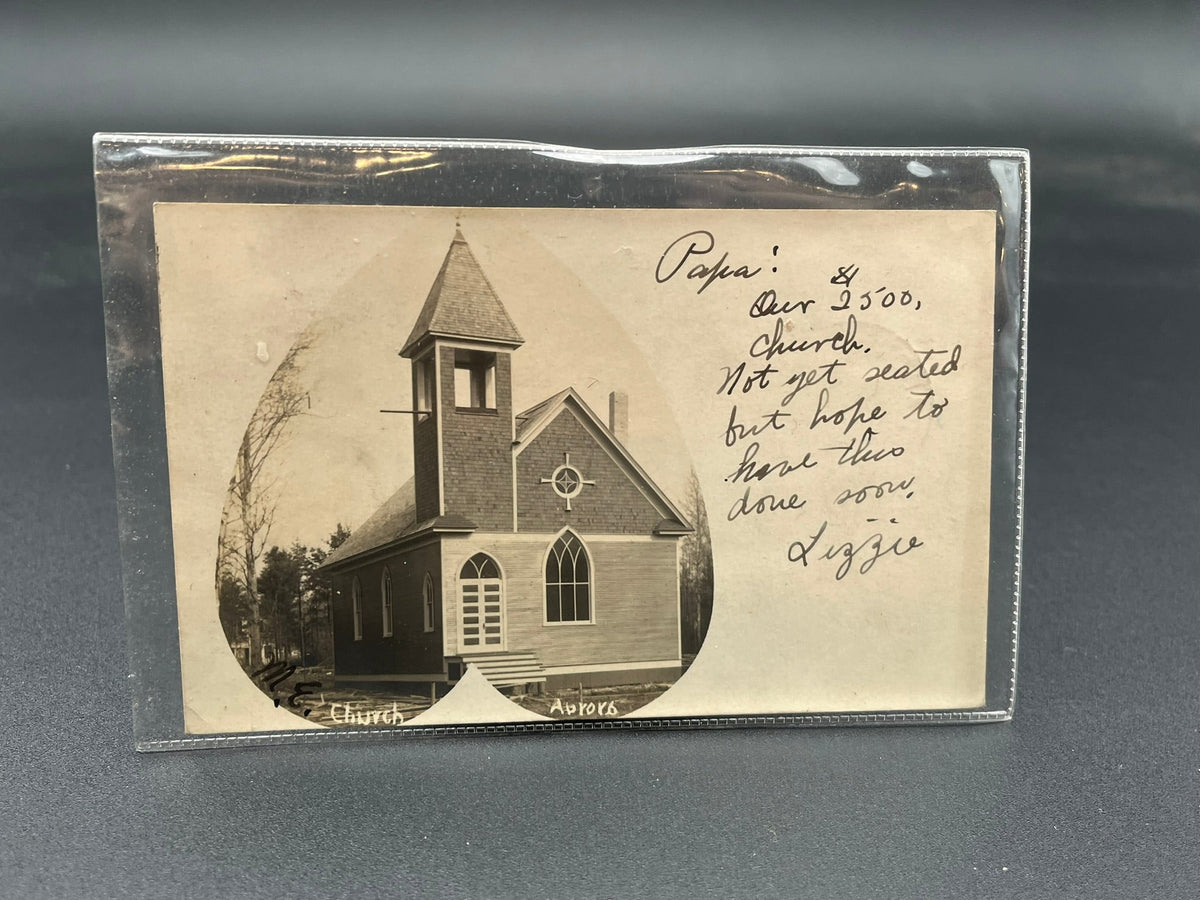 Papa:
$
Our 2500,
church.
Not yet seated
but hope to
have this
done soon.
Lizzie
M.E. Church Aurora